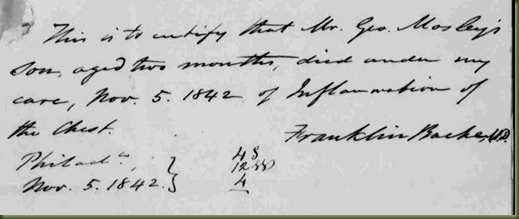 This is to certify that Mr. Geo. Mosley's
son, aged two months, died under my
care, Nov. 5. 1842 of Inflammation of
the Chest. Franklin Bache, M.D.
Philada,
Nov. 5. 1842.
48
4